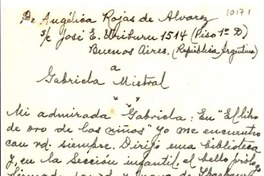 De Angélica Rojas de Alvarez
1017 1
s/c José E. Uriburu 1514 (Piso 1º D)
Buenos Aires. (República Argentina)
a
Gabriela Mistral
Mi admirada Gabriela: En "El libro
de oro de los niños" yo me encuentro
con vd. siempre. Dirijo una biblioteca
y, en la Sección infantil, el bello prólogo